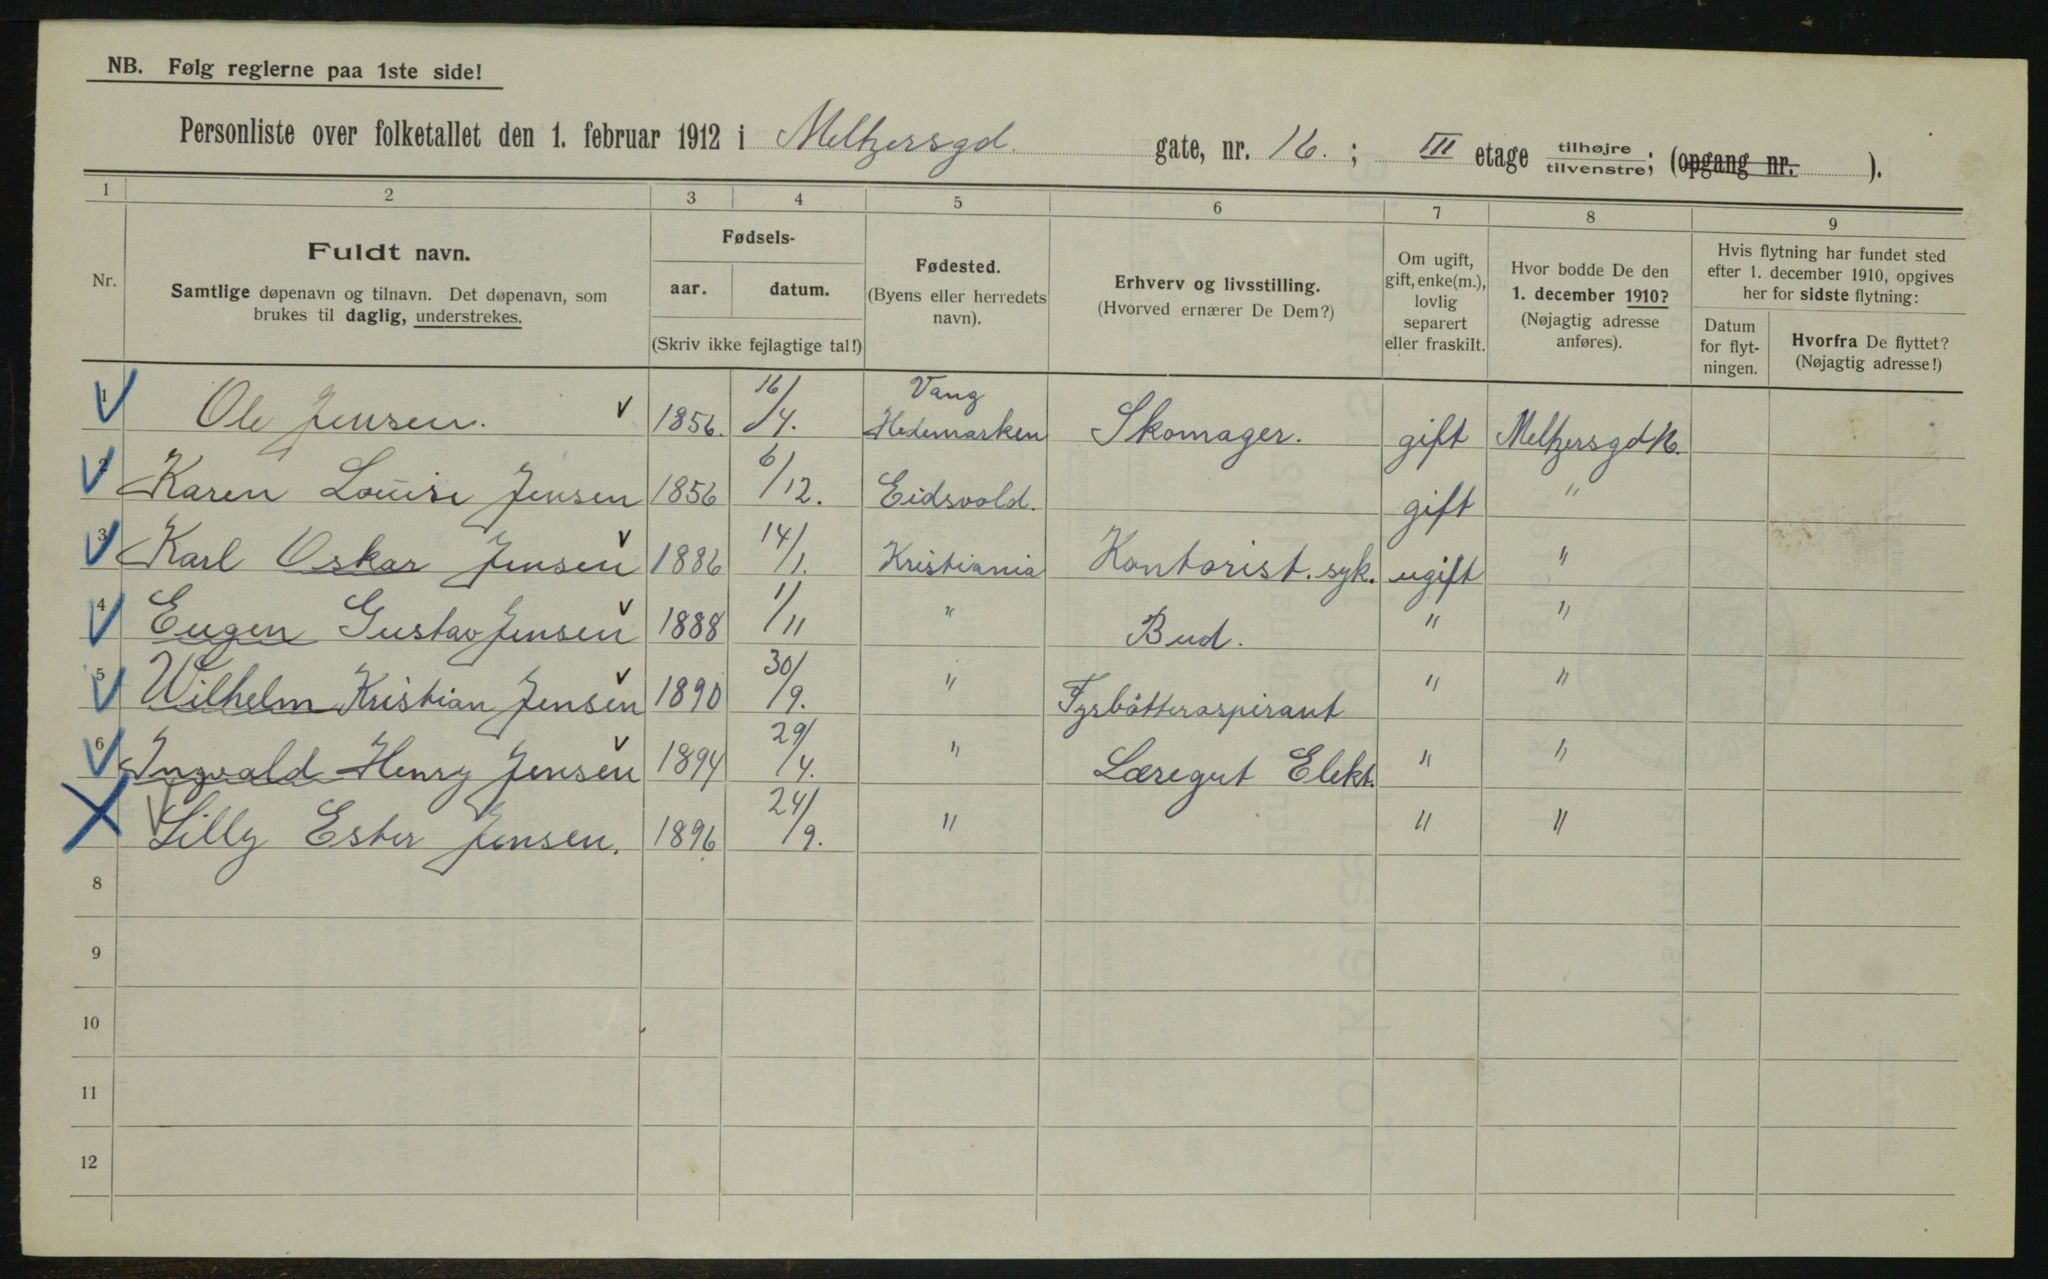 NB. Følg reglerne paa 1ste side!
Personliste over folketallet den 1. februar 1912 i Meltzersgd. gate, nr. 16. ; III etage tilhøjre / tilvenstre; (opgang nr. ).
1 2 3 4 5 6 7 8 9
Nr.
Fuldt navn.
Samtlige døpenavn og tilnavn. Det døpenavn, som
brukes til daglig, understrekes.
Fødsels-
aar. datum.
(Skriv ikke fejlagtige tal!)
Fødested.
(Byens eller herredets
navn).
Erhverv og livsstilling.
(Hvorved ernærer De Dem?)
Om ugift,
gift, enke(m.),
lovlig
separert
eller fraskilt.
Hvor bodde De den
1. december 1910?
(Nøjagtig adresse
anføres).
Hvis flytning har fundet sted
efter 1. december 1910, opgives
her for sidste flytning:
Datum
for flyt-
ningen.
Hvorfra De flyttet?
(Nøjagtig adresse!)
1 Ole Jensen. 1856. 16/4. Vang Hedemarken Skomager. gift Meltzersgd 16.
2 Karen Louise Jensen 1856 6/12. Eidsvold. gift "
3 Karl Oskar Jensen 1886 14/1. Kristiania Kontorist. syk. ugift "
4 Eugen Gustav Jensen 1888 1/11 " Bud. " "
5 Wilhelm Kristian Jensen 1890 30/9. " Fyrbötteraspirant " "
6 Ingvald Henry Jensen 1894 29/4. " Læregut Elekt. " "
Lilly Ester Jensen. 1896 24/9. " " "
8
9
10
11
12